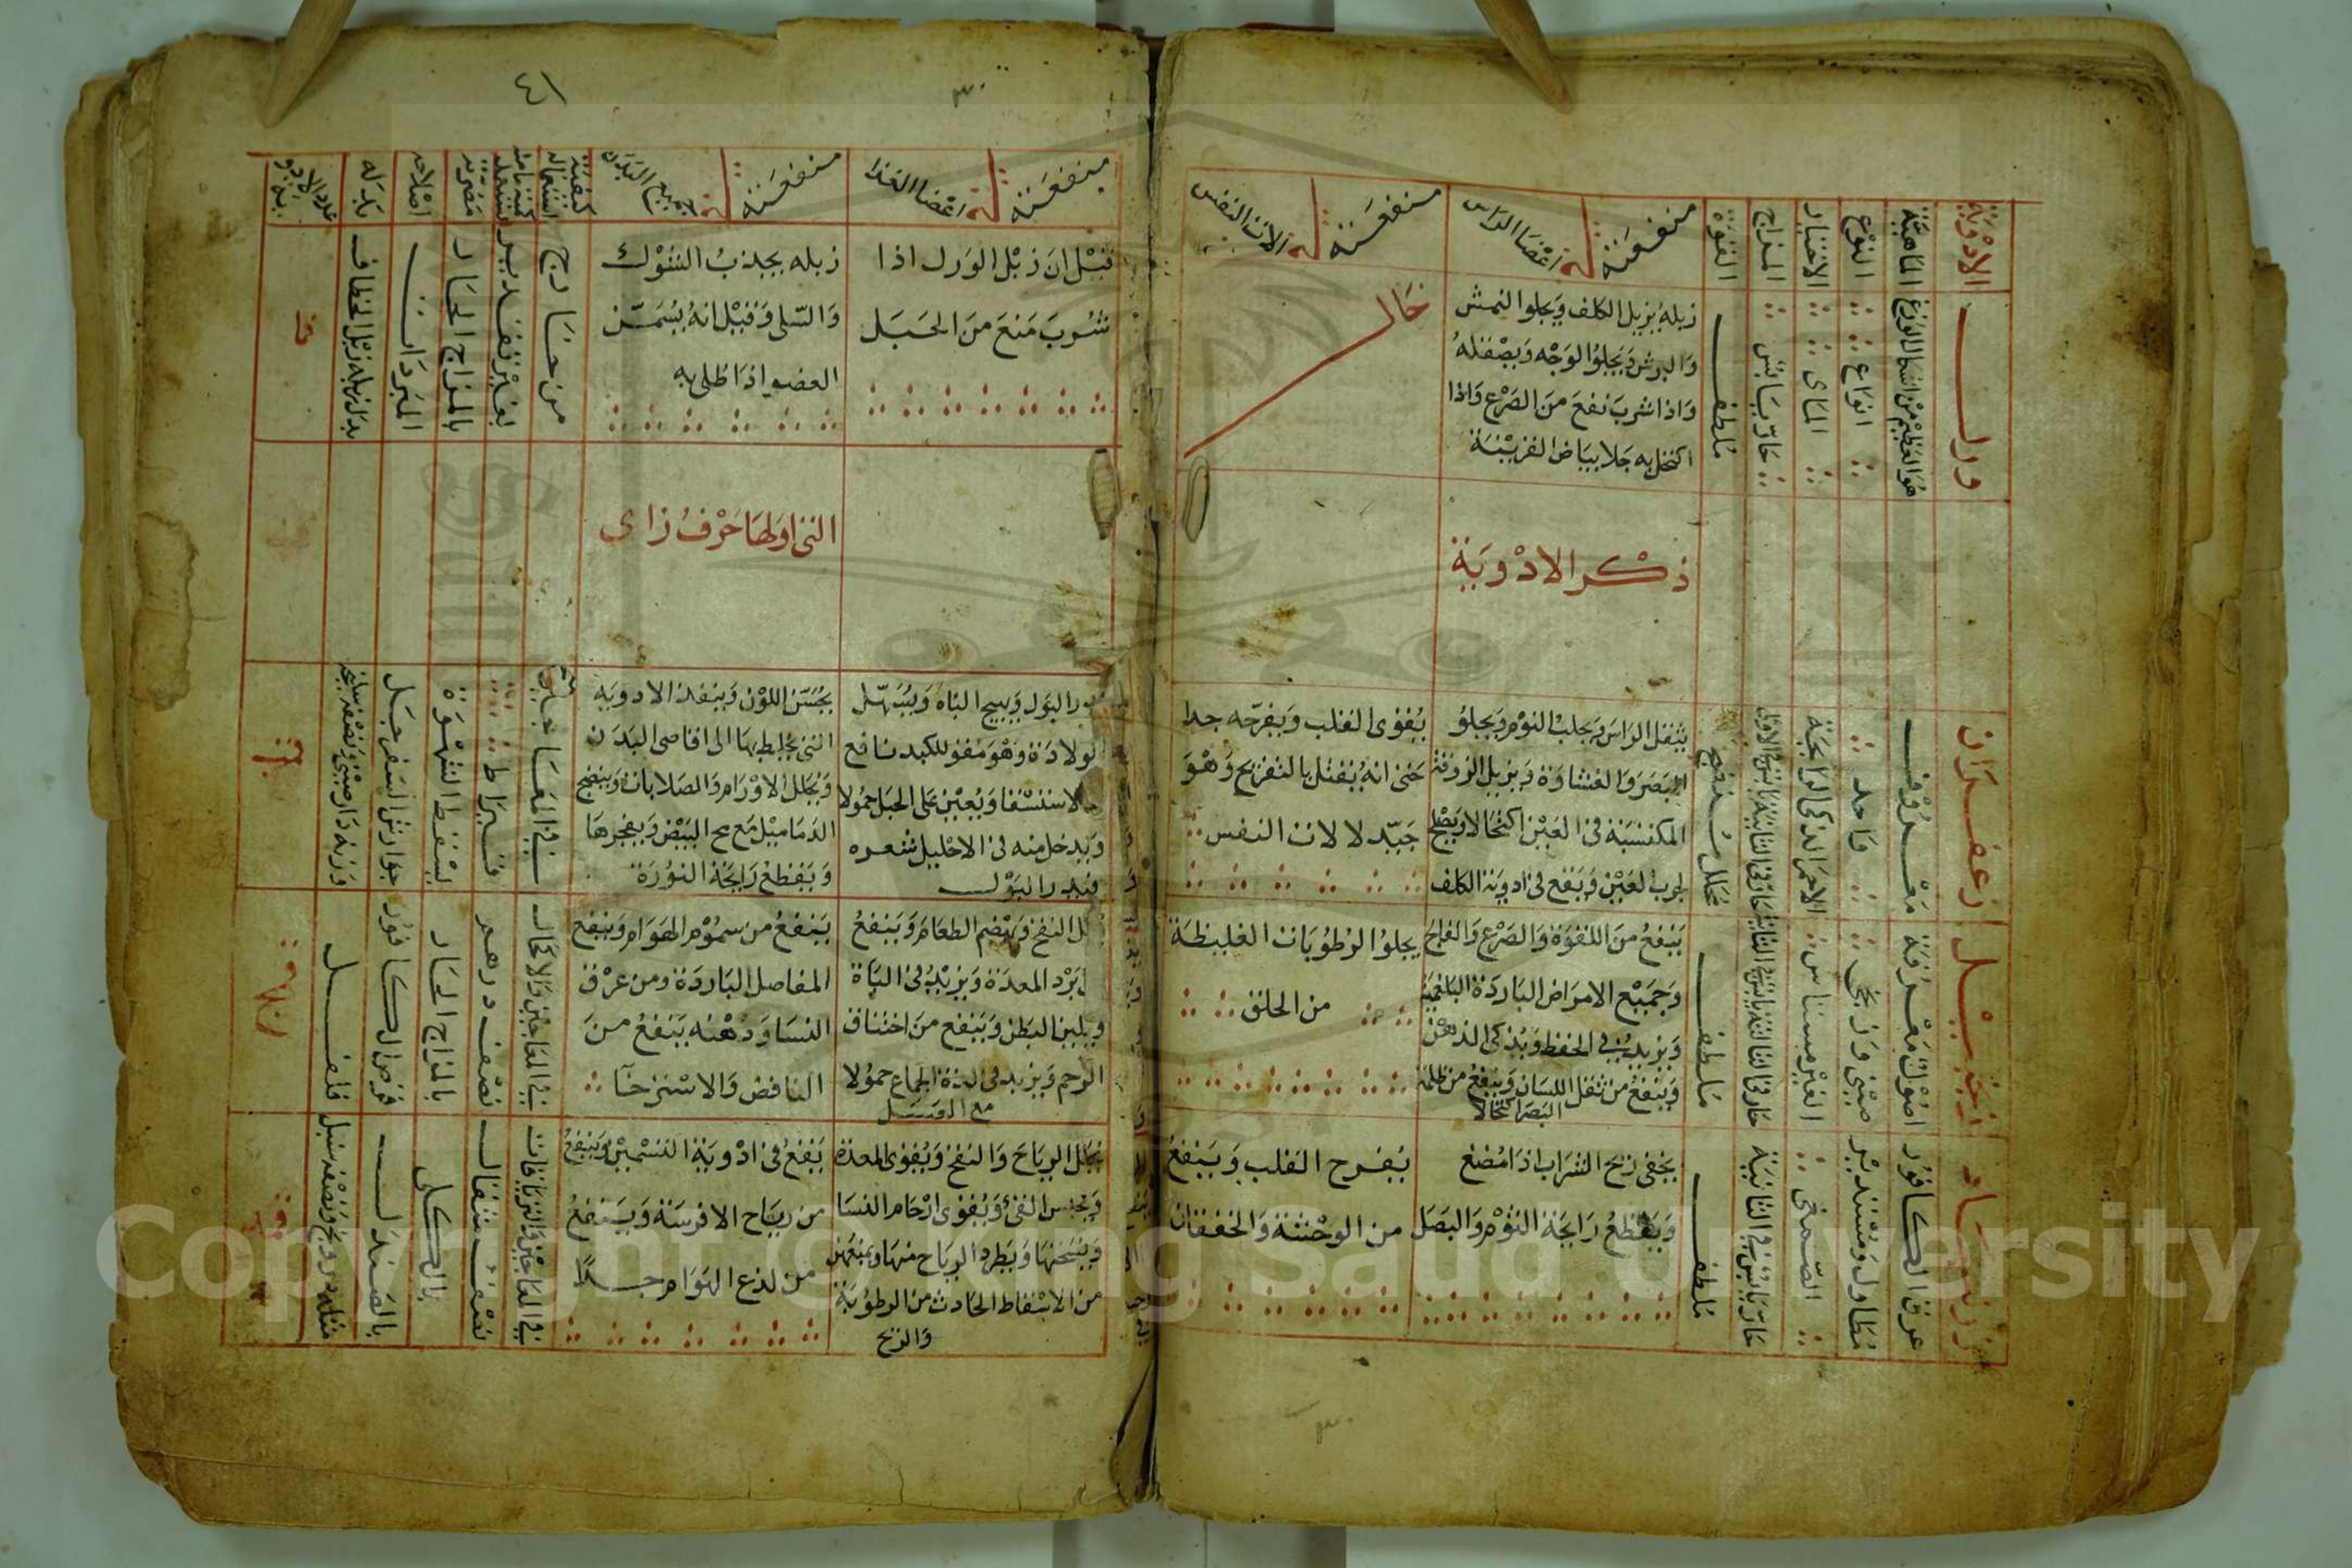 ٤١
٣٠
الادوية
الماهية
النوع
الاختيار
المزاج
القوة
منفعته في اعضا الراس
منفعته في الات النفس
ورل
هو العظيم من اشكال الوزغ
انواع
الماى
حار يابس
ملطف
زبله يزيل الكلف ويجلوا النمش
والبرش ويجلوا الوجه ويصقله
واذا شرب نفع من الصرع واذا
اكتحل به جلا بياض القرينة
خال
ذكر الادوية
زعفران
معروف
واحد
الاحمر الذكى الرايحة
محلل منضج
يثقل الراس ويجلب النوم ويجلو
البصر والغشاوة ويزيل الزرقة
المكتسبة فى العين اكتحالا ويصلح
لجرب العين وينفع فى ادوية الكلف
يقوى القلب ويفرحه جدا
حتى انه يقتل بالتفريح وهو
جيد لالات النفس
زنجبيل
اصول معرفة
صينى وزنجى
الغير مسناس
ملطف
ينفع من اللقوة والصرع والفالج
وجميع الامراض الباردة البلغمية
ويزيد فى الحفظ ويذكى الذهن
وينفع من ثقل اللسان وينفع من ظلمة
البصر اكتحالا
يجلوا الرطوبات الغليظة
من الحلق
زرنباد
عرق الكافور
مطاول ومستدير
الصمغى
حار يابس فى الثانية
ملطف
يخفى ريح الشراب اذا مضغ
ويقطع رايحة الثوم والبصل
يفرح القلب وينفع
من الوحشة والخفقان
٣٠
منفعته في اعضا الغذا
منفعته في جميع البدن
كيفية استعماله
كمية ما يستعمل
مضرته
اصلاحه
بدله
عدد الادوية
قيل ان زبل الورل اذا
شرب منع من الحبل
زبله يجذب الشوك
والسلى وقيل انه يسمن
العضو اذا طلى به
من خارج
بغير تقدير
بالمزاج الحار
المبردات
بدل زبله زبل الخطاف
التى اولها حرف زاى
يدر البول ويهيج الباه ويسهل
الولادة وهو مقو للكبد نافع
للاستسقا ويعين على الحبل حمولا
ويدخل منه فى الاحليل شعره
فيدر البول
يحسن اللون وينفذ الادوية
التى يخلط بها الى اقاصى البدن
ويحلل الاورام والصلابات وينضج
الدماميل مع مح البيض ويفجرها
ويقطع رايحة النورة
فى المعاجين
قيراط
يسقط الشهوة
جوارش السفرجل
يحلل النفخ ويهضم الطعام وينفع
من برد المعدة ويزيد فى الباة
ويلين البطن وينفع من اختناق
الرحم ويزيد فى لذة الجماع حمولا
مع العسل
ينفع من سموم الهوام وينفع
المفاصل الباردة ومن عرق
النسا ودهنه ينفع من
النافض والاسترخا
فى المعاجين والاكحال
نصف درهم
بالمزاج الحار
قرص الكافور
فلفل
يحلل الرياح والنفخ ويقوى المعدة
ويحبس القئ ويقوى ارحام النسا
ويسخنها ويطرد الرياح منها ويمنعهن
من الاسقاط الحادث من الرطوبة
والريح
ينفع فى ادوية التسمين وينفع
من رياح الافرسة وينفع
من لذع الهوام جدا
فى المعاجين والترياقات
نصف مثقال
بالكلى
بالصندل
Copyright © King Saud University